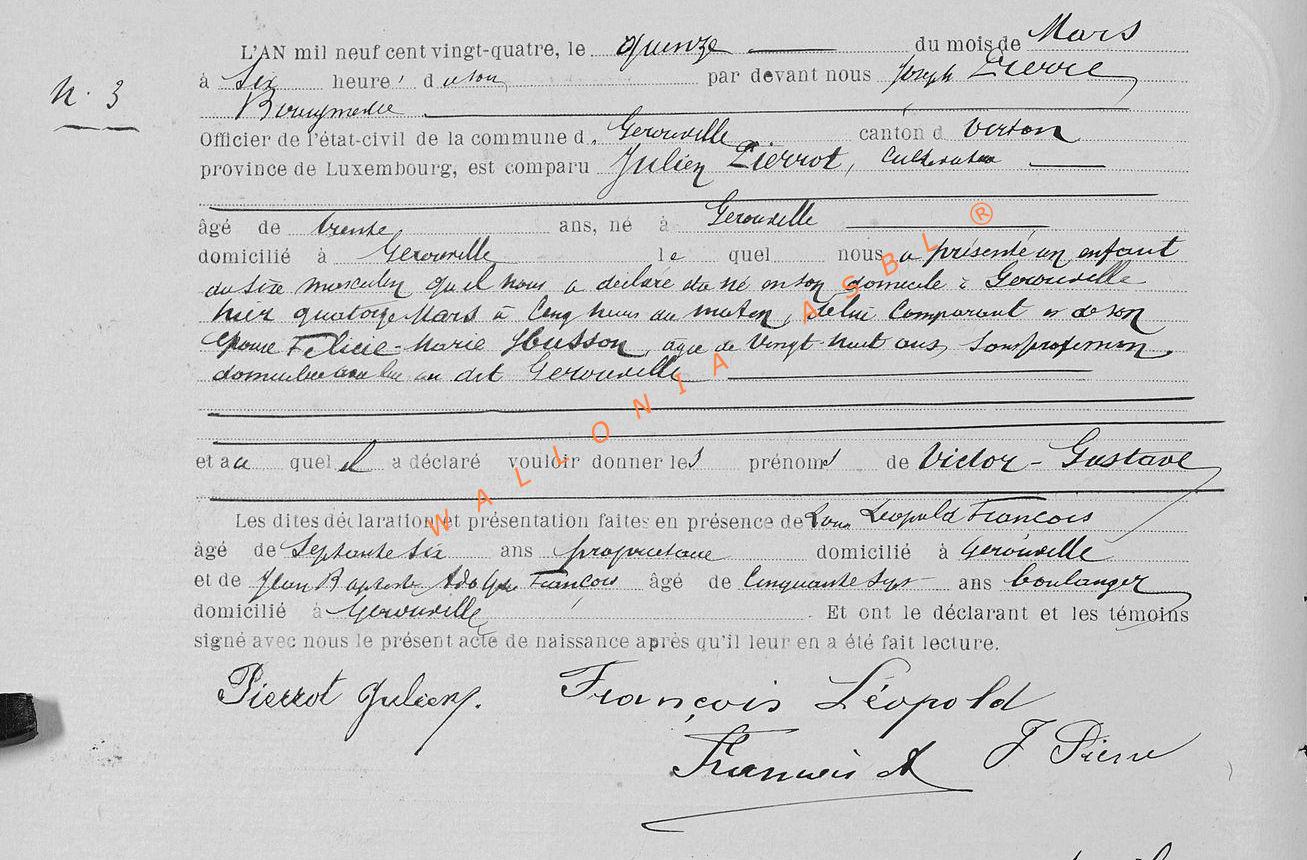 L'AN mil neuf cent vingt-quatre, le quinze du mois de Mars
N. 3
à six heures du soir par devant nous Joseph Pierre
Bourgmestre
Officier de l'état-civil de la commune de Gerouville canton de Virton
province de Luxembourg, est comparu Julien Pierrot, Cultivateur
âgé de trente ans, né à Gerouville
domicilié à Gerouville lequel nous a présenté un enfant
du sexe masculin qu'il nous a déclaré être né en son domicile à Gerouville
hier quatorze Mars à Cinq heures du matin, de lui Comparant et de son
épouse Félicie-Marie Husson, agée de Vingt huit ans, Sans profession,
domiciliée avec lui au dit Gerouville
et auquel il a déclaré vouloir donner les prénoms de Victor-Gustave
Les dites déclaration et présentation faites en présence de Léopold François
âgé de Septante six ans propriétaire domicilié à Gerouville
et de Jean Baptiste Adolphe François âgé de Cinquante Sept ans boulanger
domicilié à Gerouville. Et ont le déclarant et les témoins
signé avec nous le présent acte de naissance après qu'il leur en a été fait lecture.
Pierrot Julien. François Léopold
François A J Pierre
WALLONIA ASBL ®